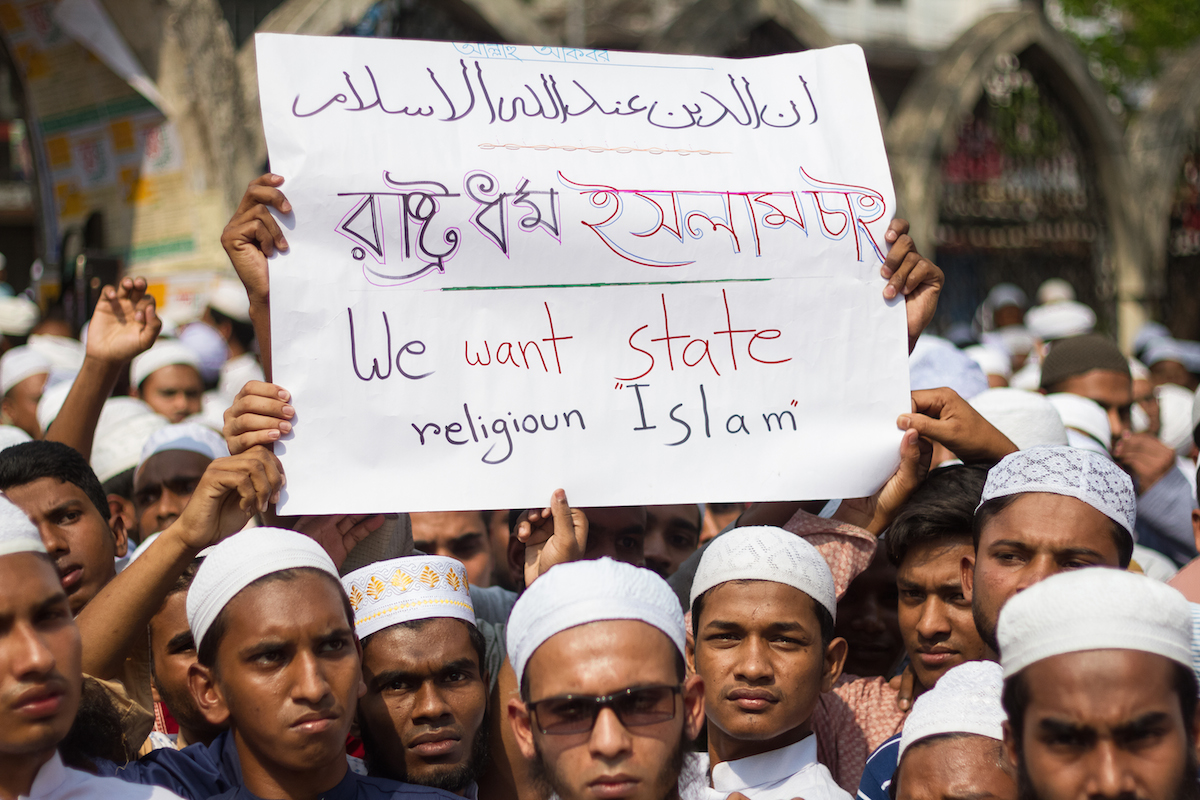 আল্লাহু আকবর
ان الدين عند الله الاسلام
রাষ্ট্র ধর্ম ইসলাম চাই
We want state
religioun "Islam"